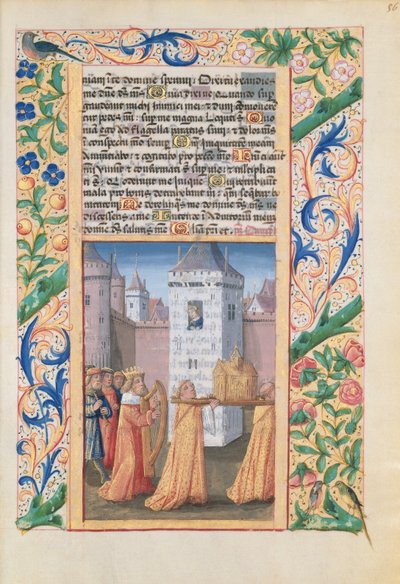 niam in te domine speraui: Tu exaudies
me dñe ds ms Quia dixi ne Quando sup
gaudeant michi inimici mei: et dum moueter
pedes mei: sup me magna
qua ego in flagella paratus sum: et dolor ms
in conspectu meo semp Qm iniquitatem meam
Anunciabo: et cogitabo pro peccato meo Inimici aut
mei viuunt et confirmati st sup me: et multiplicati
st oderunt me inique Qui retribuunt
mala pro bonis detrahebant m: qm sequebar
Ne derelinquas me domine ds ms
discesseris a me Intende in adiutorium meum
domine ds salutis mee Gloria pri et
56